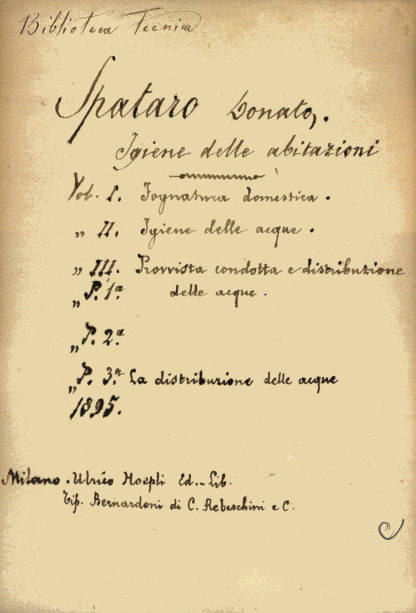 Biblioteca Tecnica
Spataro Donato,.
Igiene delle abitazioni
Vol. I. Fognatura domestica.
„ II. Igiene delle acque.
„ III. Provvista condotta e distribuzione
„ P. 1ª delle acque.
„ P. 2ª
„ P. 3ª La distribuzione delle acque
1895.
Milano. Ulrico Hoepli Ed.-Lib.
Tip. Bernardoni di C. Rebeschini e C.